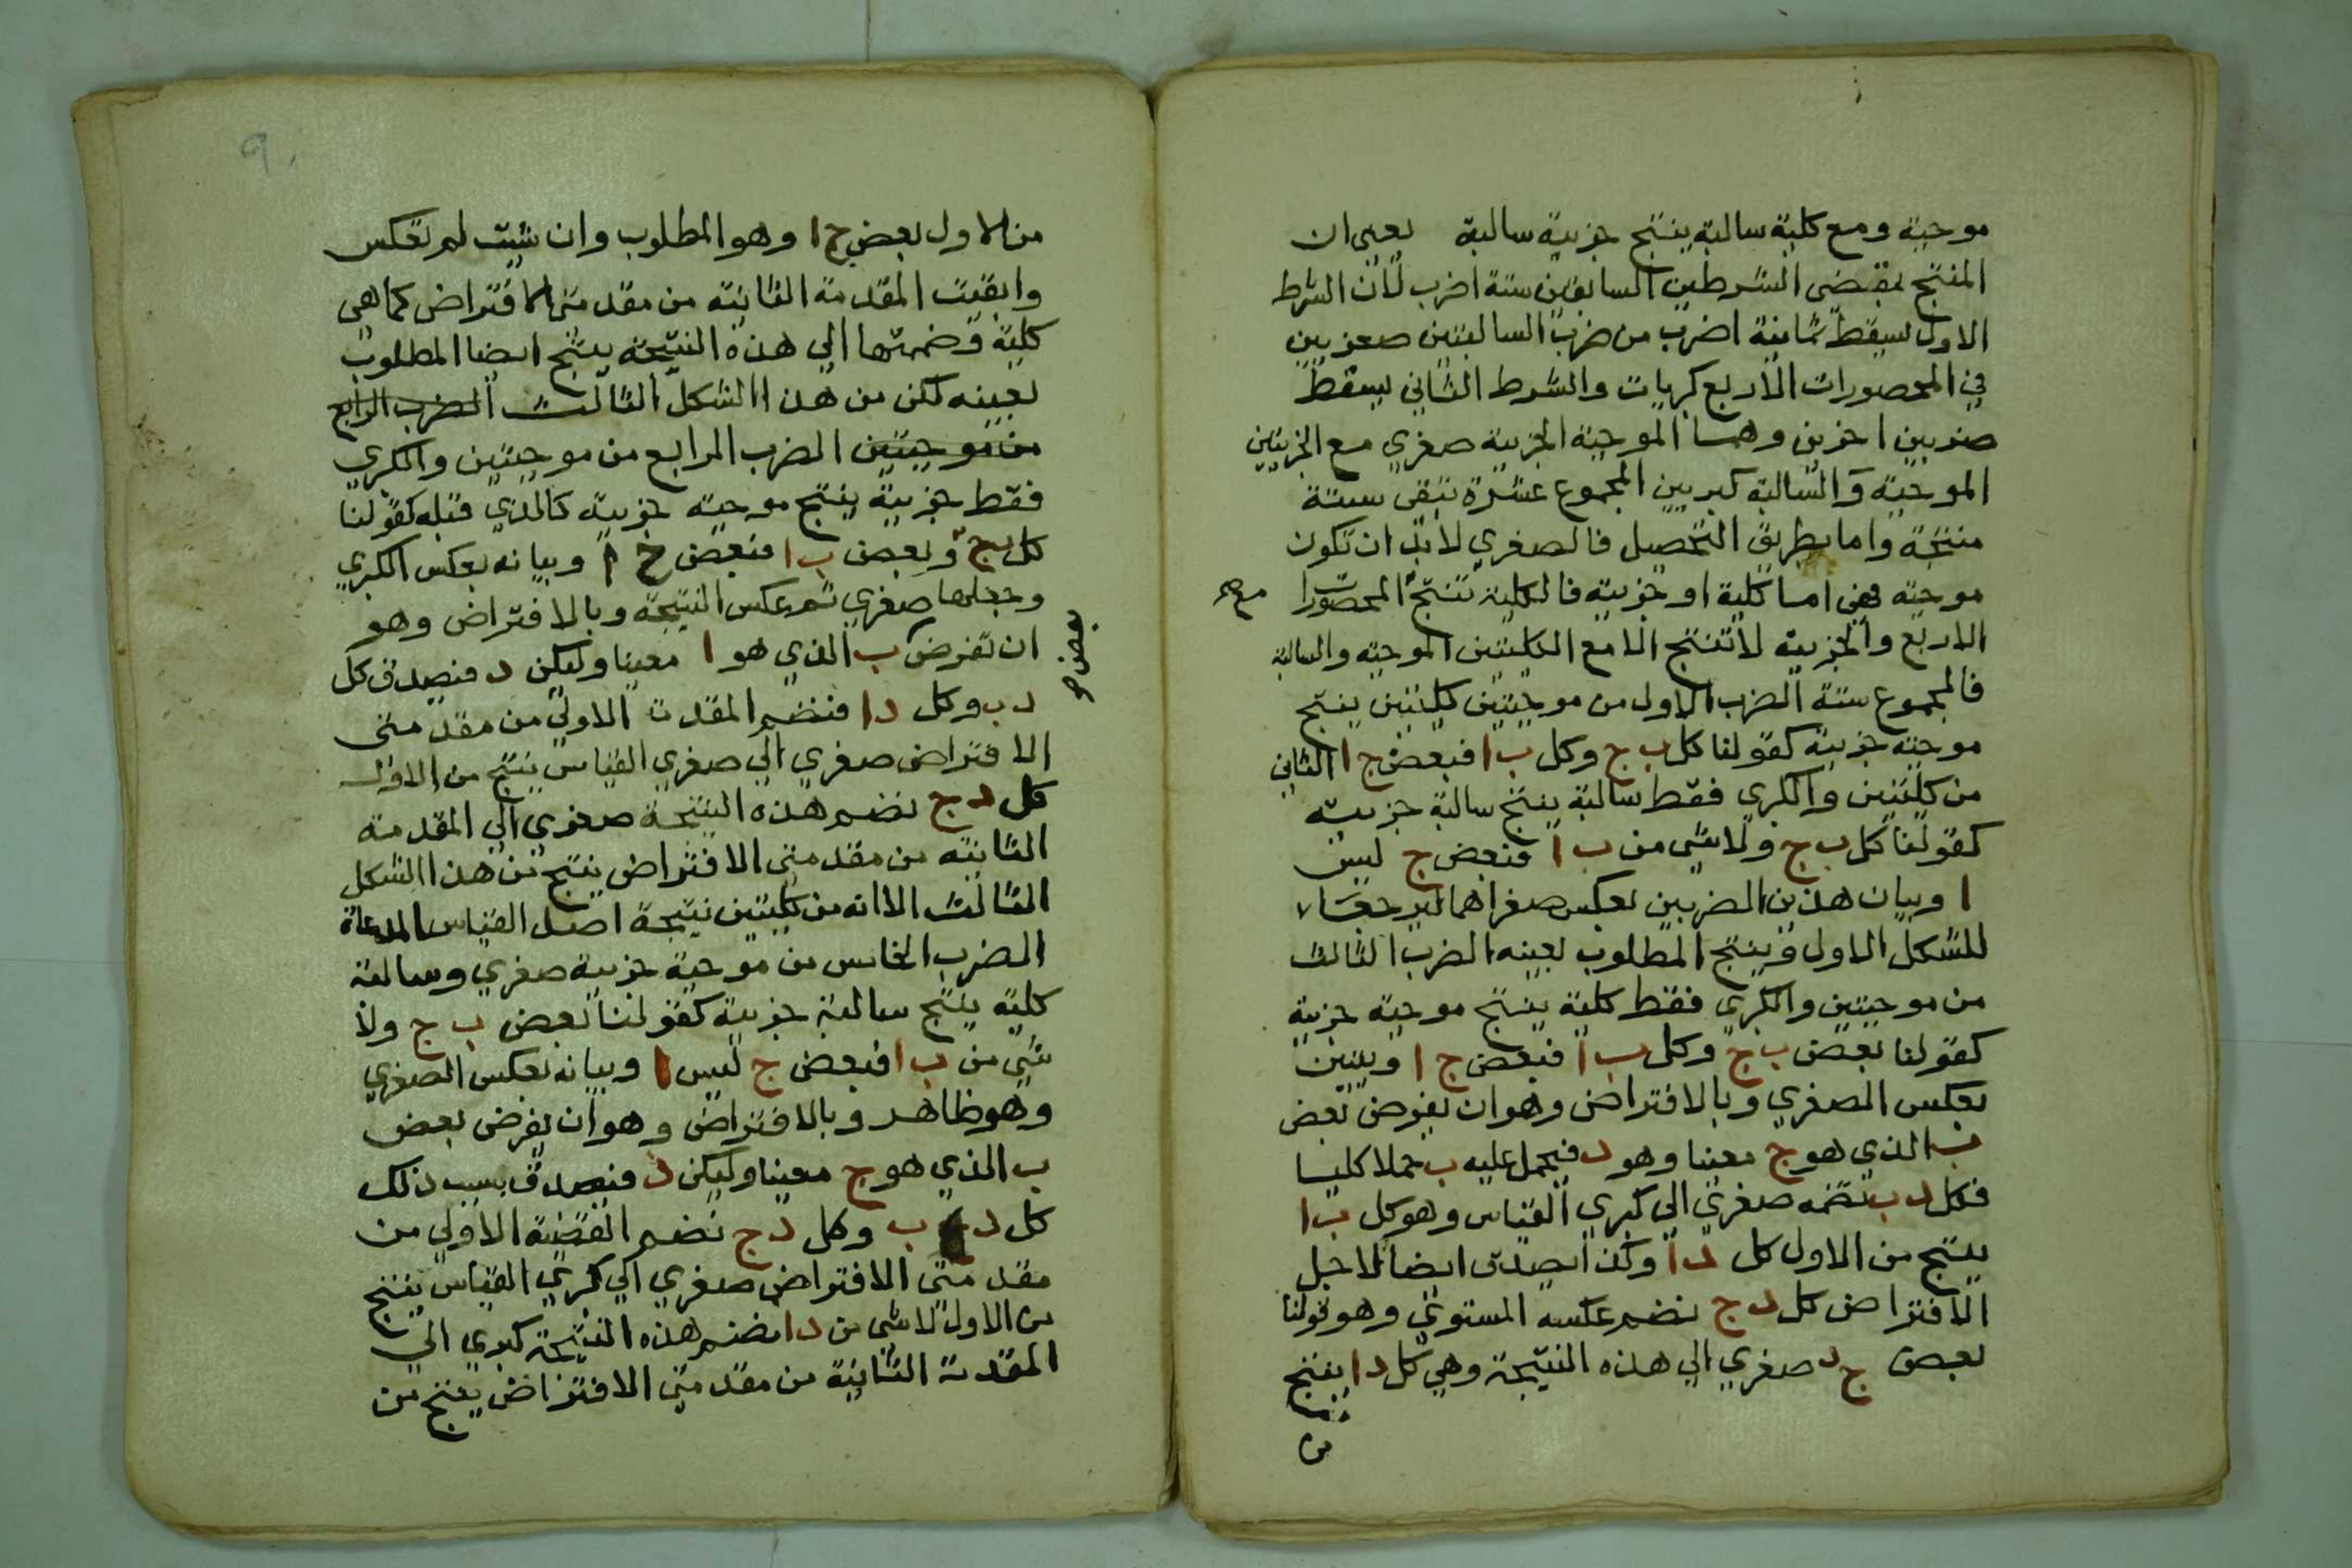 موجبة ومع كلية سالبة ينتج جزيية سالبة يعني ان
المنتج بمقتضى الشرطين السابقين ستة اضرب لان الشرط
الاول يسقط ثمانية اضرب من ضرب السالبتين صغريين
في المحصورات الاربع كبريات والشرط الثاني يسقط
ضربين اخرين وهما الموجبة الجزيية صغري مع الجزييتين
الموجبة والسالبة كبريين المجموع عشرة تبقى ستة
منتجة واما بطريق التحصيل فالصغري لابد ان تكون
موجبة فهي اما كلية او جزيية فالكلية تنتج المحصورات
مع
الاربع والجزيية لا تنتج الا مع الكليتين الموجبة والسالبة
فالمجموع ستة الضرب الاول من موجبتين كليتين ينتج
موجبة جزيية كقولنا كل ب ج وكل ب ا فبعض ج ا الثاني
من كليتين والكبري فقط سالبة ينتج سالبة جزيية
كقولنا كل ب ج ولا شي من ب ا فبعض ج ليس
ا وبيان هذين الضربين بعكس صغراهما ليرجعا
للشكل الاول وينتج المطلوب بعينه الضرب الثالث
من موجبتين والكبري فقط كلية ينتج موجبة جزيية
كقولنا بعض ب ج وكل ب ا فبعض ج ا ويتبين
بعكس الصغري وبالافتراض وهو ان يفرض بعض
ب الذي هو ج معينا وهو د فيحمل عليه ب حملا كليا
فكل د ب نضمه صغري الي كبري القياس وهو كل ب ا
ينتج من الاول كل د ا وكذا يصدق ايضا لاجل
الافتراض كل د ج نضم عكسه المستوي وهو قولنا
بعض ج د صغري الي هذه النتيجة وهي كل د ا ينتج
من
من الاول بعض ج ا وهو المطلوب وان شيت لم تعكس
وابقيت المقدمة الثانية من مقدمتي الافتراض كما هي
كلية وضممتها الي هذه النتيجة ينتج ايضا المطلوب
بعينه لكن من هذا الشكل الثالث الضرب الرابع
من موجبتين الضرب الرابع من موجبتين والكبري
فقط جزيية ينتج موجبة جزيية كالذي قبله كقولنا
كل ب ج وبعض ب ا فبعض ج ا وبيانه بعكس الكبري
وجعلها صغري ثم عكس النتيجة وبالافتراض وهو
ان تفرض ب الذي هو ا معينا وليكن د فيصدق كل
بعض
د ب وكل د ا فنضم المقدمة الاولي من مقدمتي
الافتراض صغري الي صغري القياس ينتج من الاول
كل د ج نضم هذه النتيجة صغري الي المقدمة
الثانية من مقدمتي الافتراض ينتج من هذا الشكل
الثالث الا انه من كليتين نتيجة اصل القياس المدعاة
الضرب الخامس من موجبة جزيية صغري وسالبة
كلية ينتج سالبة جزيية كقولنا بعض ب ج ولا
شي من ب ا فبعض ج ليس ا وبيانه بعكس الصغري
وهو ظاهر وبالافتراض وهو ان يفرض بعض
ب الذي هو ج معينا وليكن د فيصدق بسبب ذلك
كل د ب وكل د ج نضم القضية الاولي من
مقدمتي الافتراض صغري الي كبري القياس ينتج
من الاول لا شي من د ا نضم هذه النتيجة كبري الي
المقدمة الثانية من مقدمتي الافتراض ينتج من